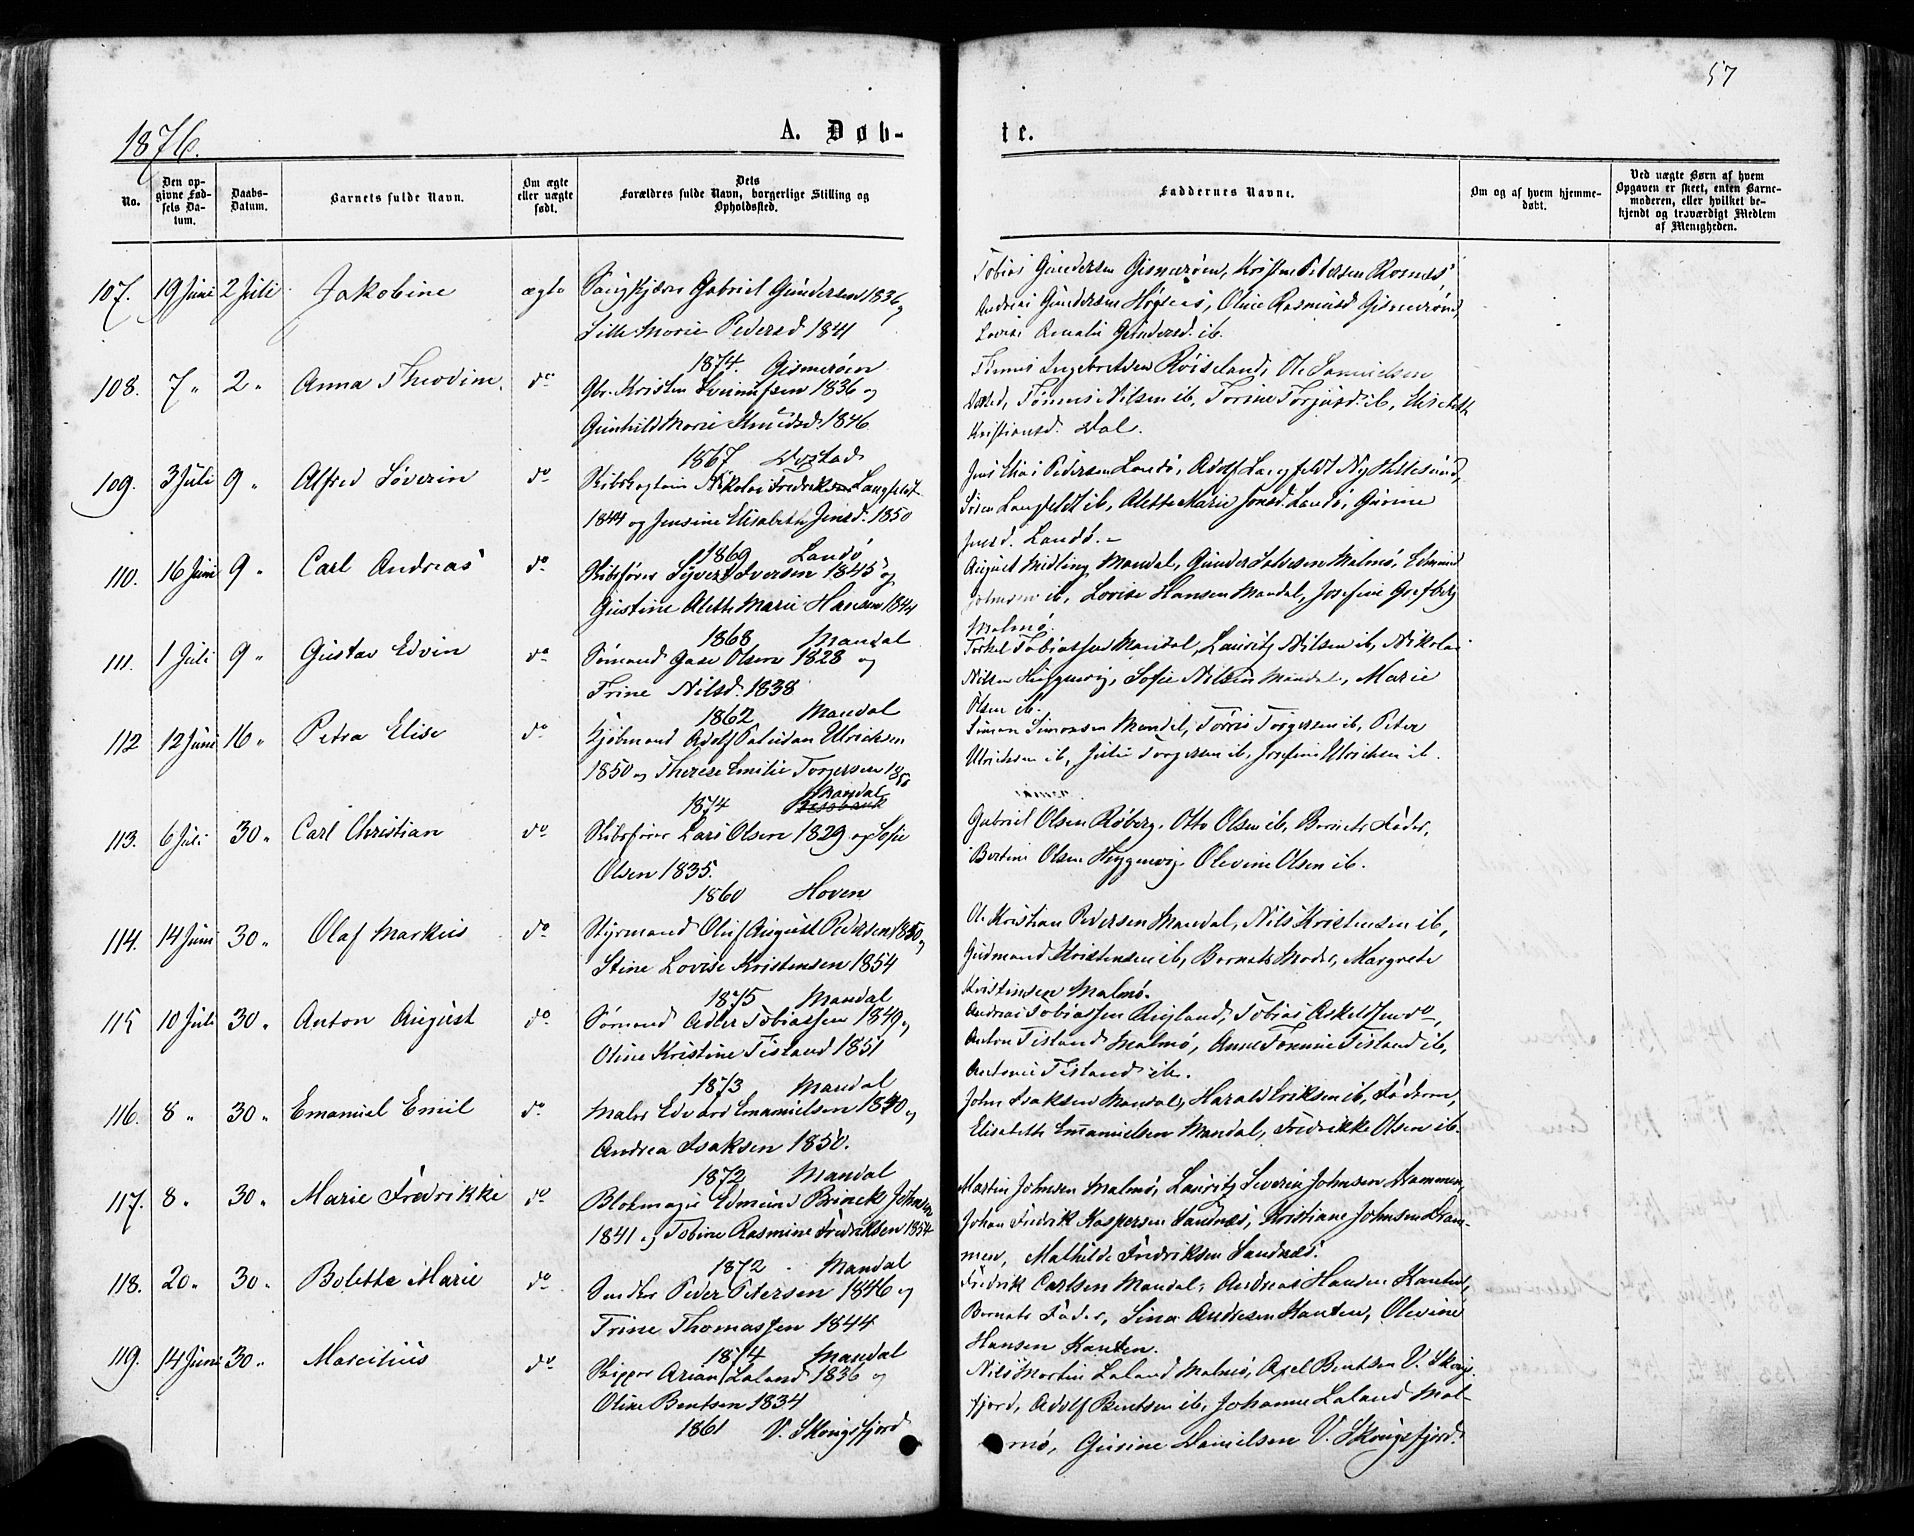 57
1876.
A. Døb-
te.
No.
Den op-
givne Fød-
sels Da-
tum.
Daabs-
Datum.
Barnets fulde Navn.
Om ægte
eller uægte
født.
Dets
Forældres fulde Navn, borgerlige Stilling og
Opholdssted.
Faddernes Navne.
Om og af hvem hjemme-
døbt.
Ved uægte Børn af hvem
Opgaven er skeet, enten Barne-
moderen, eller hvilket be-
kjendt og troværdigt Medlem
af Menigheden.
107. 19 Juni 2 Juli Jakobine ægte Gabriel Gundersen 1836 og
Marie Pedersd 1841
1874. Gismerøen
Tobias Gundersen Gismerøen, Kristen Petersen Rosnæs
Andreas Gundersen, Oline Rasmusd Gismerøen,
Lovise Amalie Gundersd. ib.
108. 7 " 2 " Anna Theodine. do Gbr. Kristen 1836 og
Gunhild Marie Knudsd. 1846
1867
Tønnes Ingebretsen Røiseland, Ole Samuelsen
Tønnes Nilsen ib, Torine Torjusd. ib,
Kristiansd. Dal.
109. 3 Juli 9 " Alfred Søverin do Skibskaptein Nikolai Fredrik Langfeldt
1844 og Jensine Elisabeth Jensd. 1850
1869 Landø
Jens Elias Pedersen Landø, Adolf Langfeldt Ny Hellesund,
Langfeldt ib, Alette Marie Jensd. Landø, Gurine
Jensd. Landø.
110. 16 Juni 9 " Carl Andreas do Skibsfører Syvert Iversen 1845 og
Gustine Alette Marie Hansen 1844
1868 Mandal
August Midling Mandal, Gunder Malmø, Edmund
Johnsen ib, Lovise Hansen Mandal, Josefine
Malmø.
111. 1 Juli 9 " Gustav Edvin do Sømand Olsen 1828 og
Trine Nilsd. 1838
1862 Mandal
Torkel Tobiassen Mandal, Lauritz Nilsen ib, Nikolai
Nilsen, Sofie Nilsen Mandal, Marie
Olsen ib.
112 12 Juni 16 " Petra Elise do Kjøbmand Adolf Paludan Ulrichsen
1850 og Therese Emilie Torgersen
1874 Mandal
Simon Simonsen Mandal, Torgersen ib, Peter
Ulrichsen ib, Julie Torgersen ib, Josefine Ulrichsen ib.
113. 6 Juli 30 " Carl Christian do Skibsfører Lars Olsen 1829 og Sofie
Olsen 1835.
1860 Hoven
Gabriel Olsen Røberg, Otto Olsen ib, Barnets Fader,
Bertine Olsen, Olevine Olsen ib.
114. 14 Juni 30 " Olaf Markus do Styrmand Oluf August Pedersen 1850 og
Stine Lovise Kristensen 1854
1875 Mandal
Ole Kristian Pedersen Mandal, Nils Kristensen ib,
Gudmund Kristensen ib, Barnets Moder, Margrete
Kristensen Malmø.
115 10 Juli 30 " Anton August do Sømand Adler Tobiassen 1849 og
Oline Kristine Tisland 1851
1873 Mandal
Andreas Tobiassen, Tobias Askeldsen do,
Anton Tisland Malmø, Anne Tisland ib,
Antonie Tisland ib.
116. 8 " 30 " Emanuel Emil do Maler Edvard Emanuelsen 1840 og
Andrea Isaksen 1850.
1872 Mandal
John Isaksen Mandal, Harald Eriksen ib, Faderen,
Elisabeth Emanuelsen Mandal, Fredrikke Olsen ib.
117. 8 " 30 " Marie Fredrikke do Blokmager Edmund Brinck Johnsen
1841 og Tobine Rasmine Fredriksen 1854
1872 Mandal
Martin Johnsen Malmø, Lauritz Severin Johnsen Drammen,
Johan Fredrik Kaspersen Sandnæs, Kristiane Johnsen Dram-
men, Mathilde Fredriksen Sandnæs.
118. 20 " 30 " Bolette Marie do Snedker Peder Petersen 1846 og
Trine Thomassen 1844
1874 Mandal
Fredrik Carlsen Mandal, Andreas Hansen Kanten,
Barnets Fader, Sina Andresen Kanten, Olevine
Hansen Kanten.
119. 14 Juni 30 " Marcelius do Skipper Arian Laland 1836 og
Oline Bentsen 1834
1861 V. Skongsfjord
Nils Martin Laland Malmø, Axel Bentsen V. Skongs-
fjord, Adolf Bentsen ib, Johanne Laland Mal-
mø, Gusine Danielsen V. Skongsfjord.